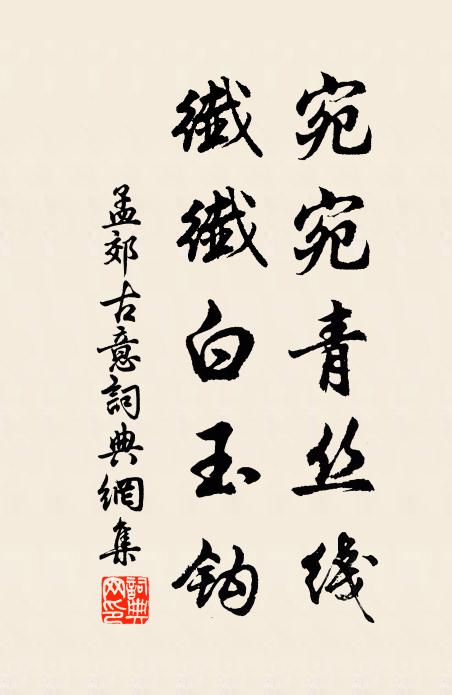 宛宛青丝线
纖纖白玉钩
孟郊古意詞典網集
詞典网印